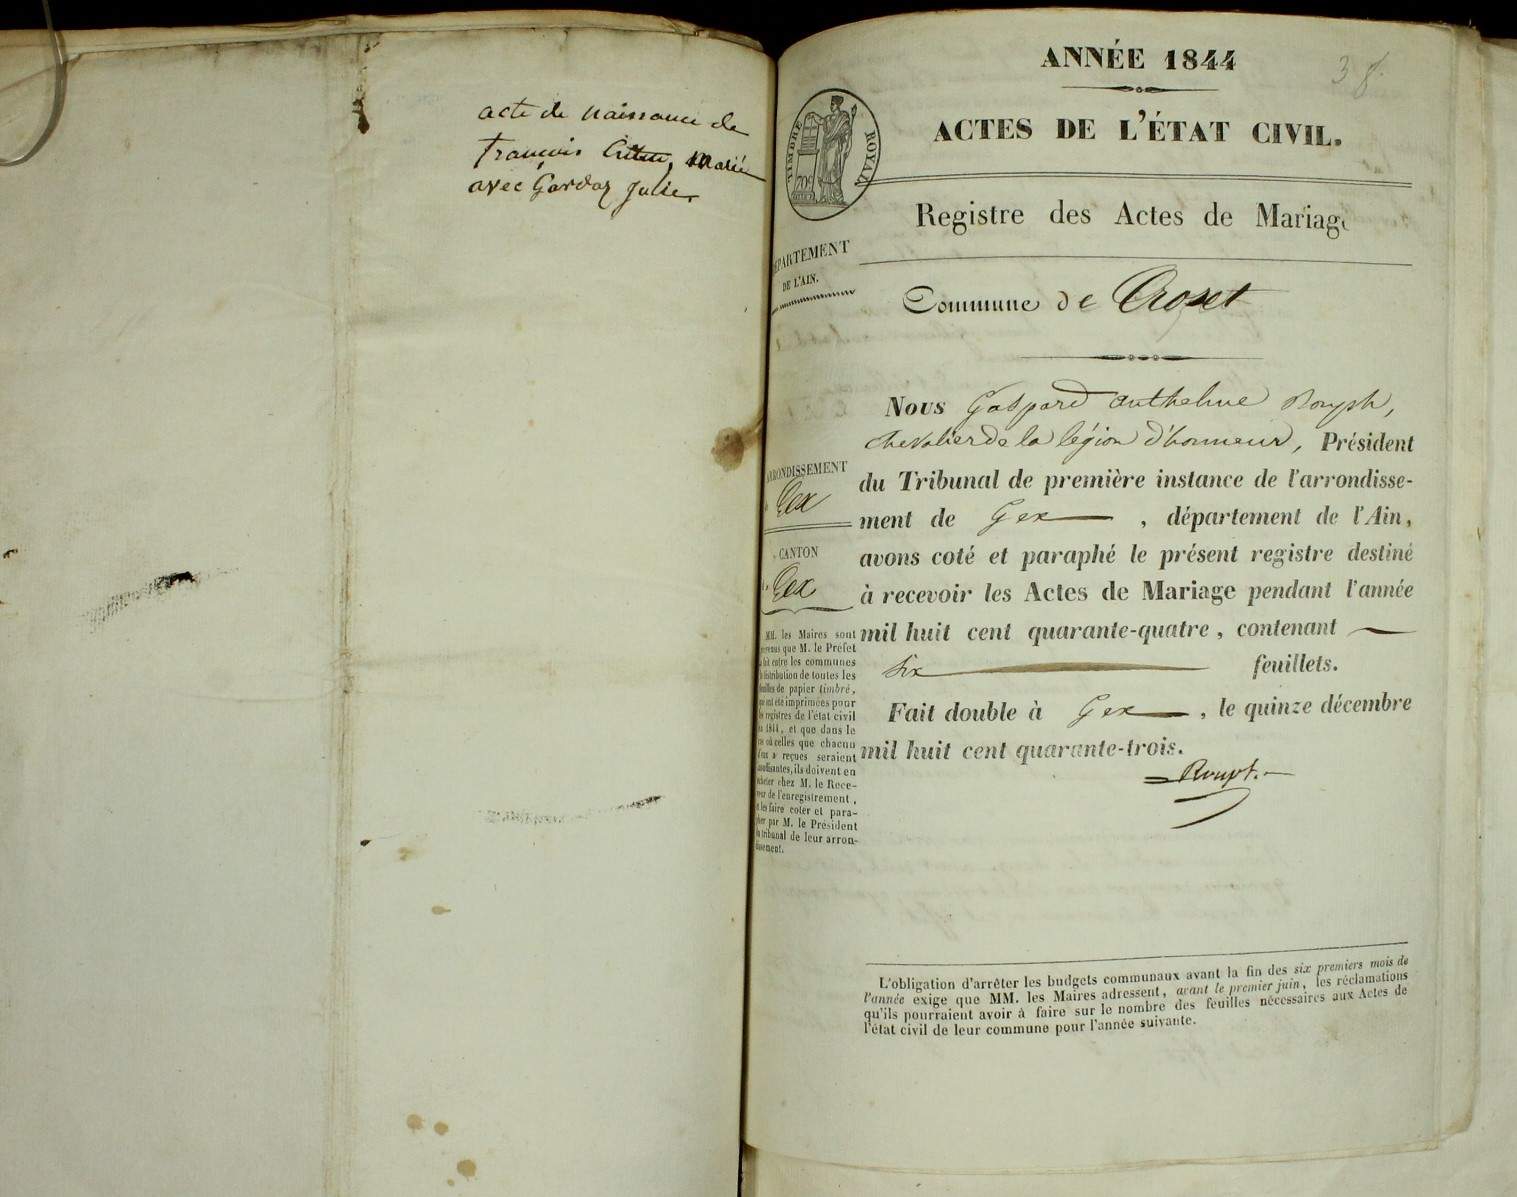 acte de naissance de
François marié
avec Gardaz Julie
ANNÉE 1844
38
ACTES DE L'ÉTAT CIVIL.
TIMBRE ROYAL
Registre des Actes de Mariage
DÉPARTEMENT
DE L'AIN.
Commune de Crozet
Nous Gaspard Anthelme
chevalier de la légion d'honneur, Président
du Tribunal de première instance de l'arrondisse-
ment de Gex, département de l'Ain,
avons coté et paraphé le présent registre destiné
à recevoir les Actes de Mariage pendant l'année
mil huit cent quarante-quatre, contenant
six feuillets.
Fait double à Gex, le quinze décembre
mil huit cent quarante-trois.
ARRONDISSEMENT
Gex
CANTON
Gex
MM. les Maires sont
prévenus que M. le Préfet
a fait entre les communes
la distribution de toutes les
feuilles de papier timbré,
qui ont été imprimées pour
les registres de l'état civil
en 1844, et que dans le
cas où celles que chacun
d'eux a reçues seraient
insuffisantes, ils doivent en
acheter chez M. le Rece-
veur de l'enregistrement,
et les faire coter et para-
pher par M. le Président
du tribunal de leur arron-
dissement.
L'obligation d'arrêter les budgets communaux avant la fin des six premiers mois de
l'année exige que MM. les Maires adressent, avant le premier juin, les réclamations
qu'ils pourraient avoir à faire sur le nombre des feuilles nécessaires aux Actes de
l'état civil de leur commune pour l'année suivante.